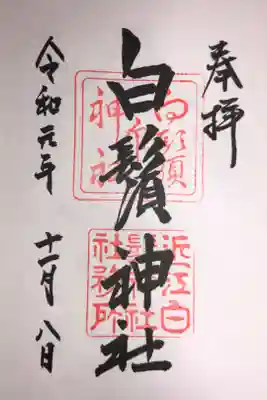 奉拝
白鬚神社
令和元年
十一月八日
近江白
鬚神社
社務所